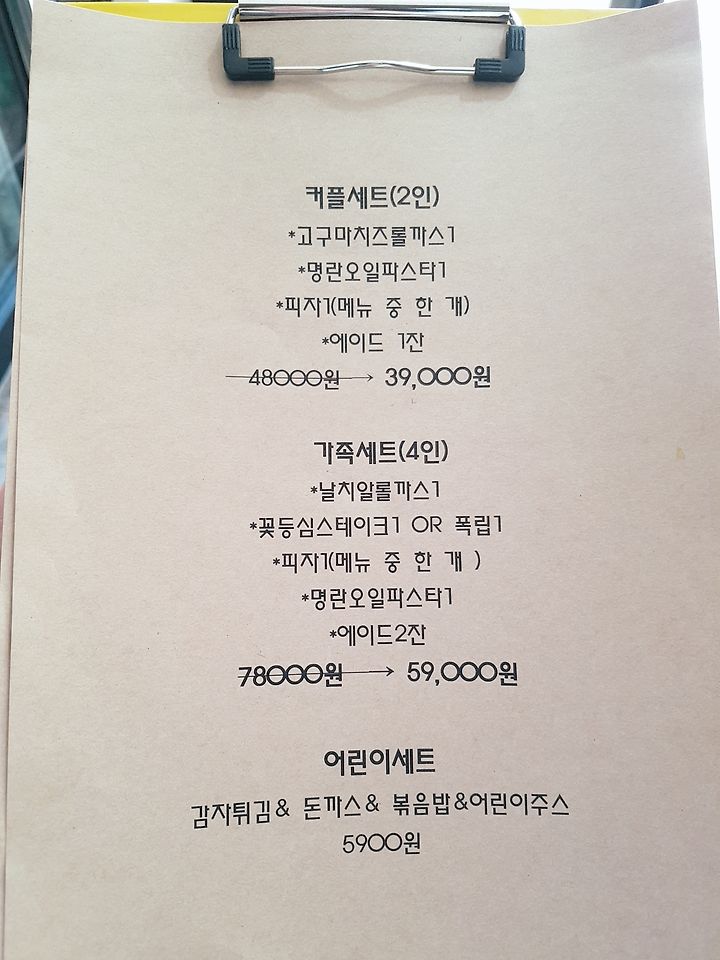 커플세트(2인)
*고구마치즈롤까스1
*명란오일파스타1
*피자1(메뉴 중 한 개)
*에이드 1잔
48000원 → 39,000원
가족세트(4인)
*날치알롤까스1
*꽃등심스테이크1 OR 폭립1
*피자1(메뉴 중 한 개 )
*명란오일파스타1
*에이드2잔
78000원 → 59,000원
어린이세트
감자튀김& 돈까스& 볶음밥&어린이주스
5900원